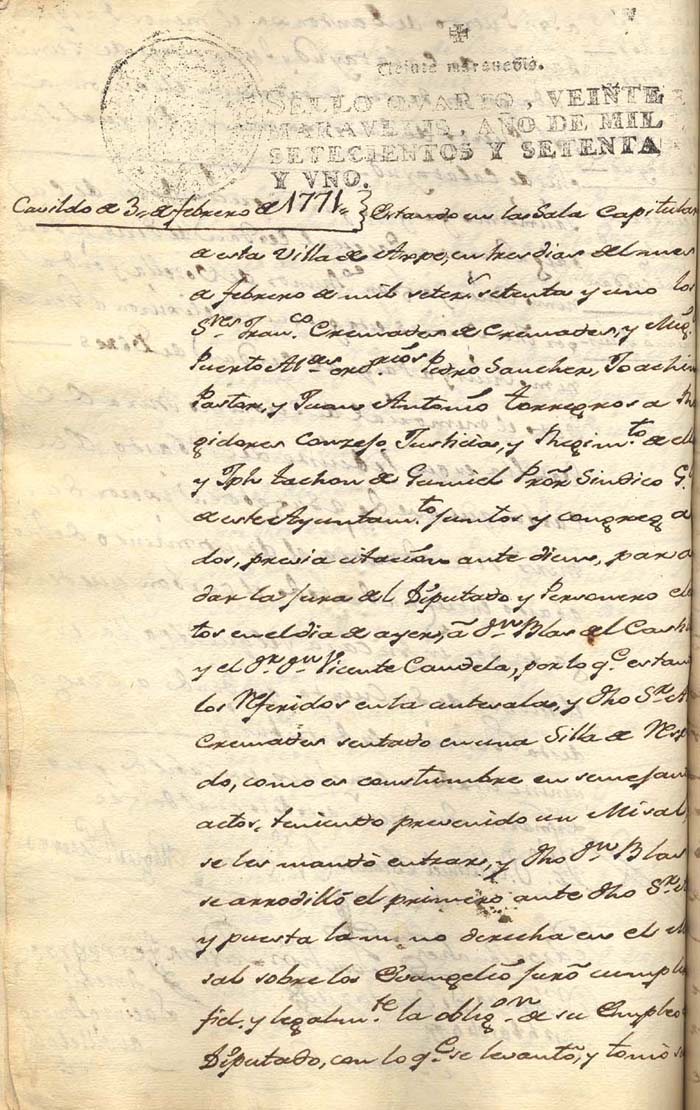 Treinta maravedis.
SELLO QVARTO, VEINTE
MARAVEDIS, AÑO DE MIL
SETECIENTOS Y SETENTA
Y VNO.
Cavildo de 3,, de febrero de 1771,, } Estando en la Sala Capitular
de esta Villa de Aspe, en tres dias del mes
de febrero de mil setecs. setenta y uno los
Sres. Franco. Cremades de Cremades, y Migl.
Puerto Aldes. ordrios. Pedro Sanchez, Joachin
Pastor, y Juan Antonio Torregrosa Re
gidores Conzejo Justicia, y Regimto. de ella
y Jph Pror. Sindico Gl.
de este Ayuntamto. Juntos y congrega
dos, previa citacion ante diem, para
dar la Jura del Diputado y Personero elec
tos en el dia de ayer, a Dn. Blas del Castillo
y el Dr. Dn. Vicente Candela, por lo q. estan
los Referidos en la antesala, y dho Sr. A
Cremades sentado en una Silla de Respal
do, como es constumbre en semejan
actos, teniendo prevenido un Misal,
se les mandó entrar, y dho Dn. Blas
se arrodilló el primero ante dho Sr.
y puesta la mano derecha en el Mi
sal sobre los Evangelios Juró cumplir
fiel y legalmte. la obligon. de su Empleo de
Diputado, con lo q. se levantó, y tomó